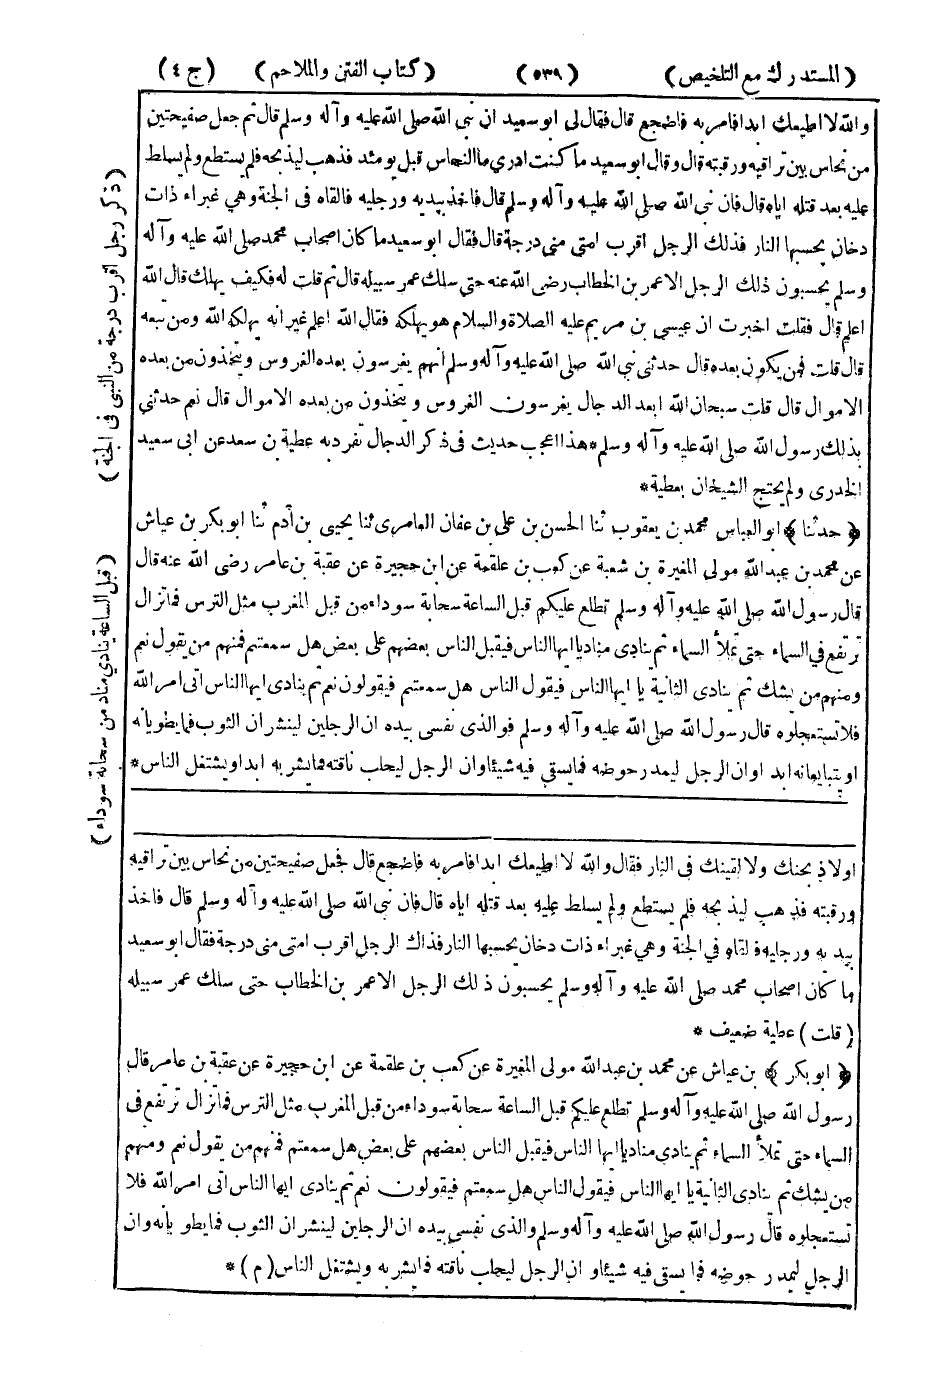 (المستدرك مع التلخيص) (٥٣٩) (كتاب الفتن والملاحم) (ج ٤)
والله لا اطيعك ابدا فامر به فاضجع قال فقال لى ابو سعيد ان نبى الله صلى الله عليه وآله وسلم قال ثم جعل صفيحتين
من نحاس بين تراقيه ورقبته قال وقال ابو سعيد ما كنت ادرى ما النحاس قبل يومئذ فذهب ليذبحه فلم يستطع ولم يسلط
عليه بعد قتله اياه قال فان نبى الله صلى الله عليه وآله وسلم قال فاخذ بيديه ورجليه فالقاه فى الجنة وهي غبراء ذات
دخان يحسبها النار فذلك الرجل اقرب امتى منى درجة قال فقال ابو سعيد ما كان اصحاب محمد صلى الله عليه وآله
وسلم يحسبون ذلك الرجل الا عمر بن الخطاب رضى الله عنه حتى سلك عمر سبيله قال ثم قلت له فكيف يهلك قال الله
اعلم قال فقلت اخبرت ان عيسى بن مريم عليه الصلاة والسلام هو يهلكه فقال الله اعلم غير انه يهلكه الله ومن تبعه
قال قلت فمن يكون بعده قال حدثنى نبى الله صلى الله عليه وآله وسلم انهم يغرسون بعده الغروس ويتخذون من بعده
الاموال قال قلت سبحان الله ابعد الدجال يغرسون الغروس ويتخذون من بعده الاموال قال نعم حدثني
بذلك رسول الله صلى الله عليه وآله وسلم * هذا اعجب حديث فى ذكر الدجال تفرد به عطية بن سعد عن ابى سعيد
الخدرى ولم يحتج الشيخان بعطية *
﴿حدثنا﴾ ابو العباس محمد بن يعقوب ثنا الحسن بن على بن عفان العامرى ثنا يحيى بن آدم ثنا ابو بكر بن عياش
عن محمد بن عبد الله مولى المغيرة بن شعبة عن كعب بن علقمة عن ابن حجيرة عن عقبة بن عامر رضى الله عنه قال
قال رسول الله صلى الله عليه وآله وسلم تطلع عليكم قبل الساعة سحابة سوداء من قبل المغرب مثل الترس فما تزال
ترتفع في السماء حتى تملأ السماء ثم ينادى مناد يا ايها الناس فيقبل الناس بعضهم على بعض هل سمعتم فمنهم من يقول نعم
ومنهم من يشك ثم ينادى الثانية يا ايها الناس فيقول الناس هل سمعتم فيقولون نعم ثم ينادى ايها الناس اتى امر الله
فلا تستعجلوه قال رسول الله صلى الله عليه وآله وسلم فوالذى نفسى بيده ان الرجلين لينشران الثوب فما يطويانه
او يتبايعانه ابدا وان الرجل ليمدر حوضه فما يسقي فيه شيئا وان الرجل ليحلب ناقته فما يشربه ابدا ويشتغل الناس *
(ذكر رجل اقرب درجة من النبى فى الجنة)
(قبل الساعة ينادي مناد من سحابة سوداء)
اولاذبحنك ولالقينك فى النار فقال والله لا اطيعك ابدا فامر به فاضجع قال فجعل صفيحتين من نحاس بين تراقيه
ورقبته فذهب ليذبحه فلم يستطع ولم يسلط عليه بعد قتله اياه قال فان نبى الله صلى الله عليه وآله وسلم قال فاخذ
بيديه ورجليه فالقاه في الجنة وهي غبراء ذات دخان يحسبها النار فذاك الرجل اقرب امتى منى درجة فقال ابو سعيد
ما كان اصحاب محمد صلى الله عليه وآله وسلم يحسبون ذلك الرجل الا عمر بن الخطاب حتى سلك عمر سبيله
(قلت) عطية ضعيف *
﴿ابو بكر﴾ بن عياش عن محمد بن عبد الله مولى المغيرة عن كعب بن علقمة عن ابن حجيرة عن عقبة بن عامر قال
رسول الله صلى الله عليه وآله وسلم تطلع عليكم قبل الساعة سحابة سوداء من قبل المغرب مثل الترس فما تزال ترتفع فى
السماء حتى تملأ السماء ثم ينادى مناد يا ايها الناس فيقبل الناس بعضهم على بعض هل سمعتم فمنهم من يقول نعم ومنهم
من يشك ثم ينادى الثانية يا ايها الناس فيقول الناس هل سمعتم فيقولون نعم ثم ينادى ايها الناس اتى امر الله فلا
تستعجلوه قال رسول الله صلى الله عليه وآله وسلم والذى نفسى بيده ان الرجلين لينشران الثوب فما يطويانه وان
الرجل ليمدر حوضه فما يسقى فيه شيئا وان الرجل ليحلب ناقته فما يشربه ويشتغل الناس (م) *